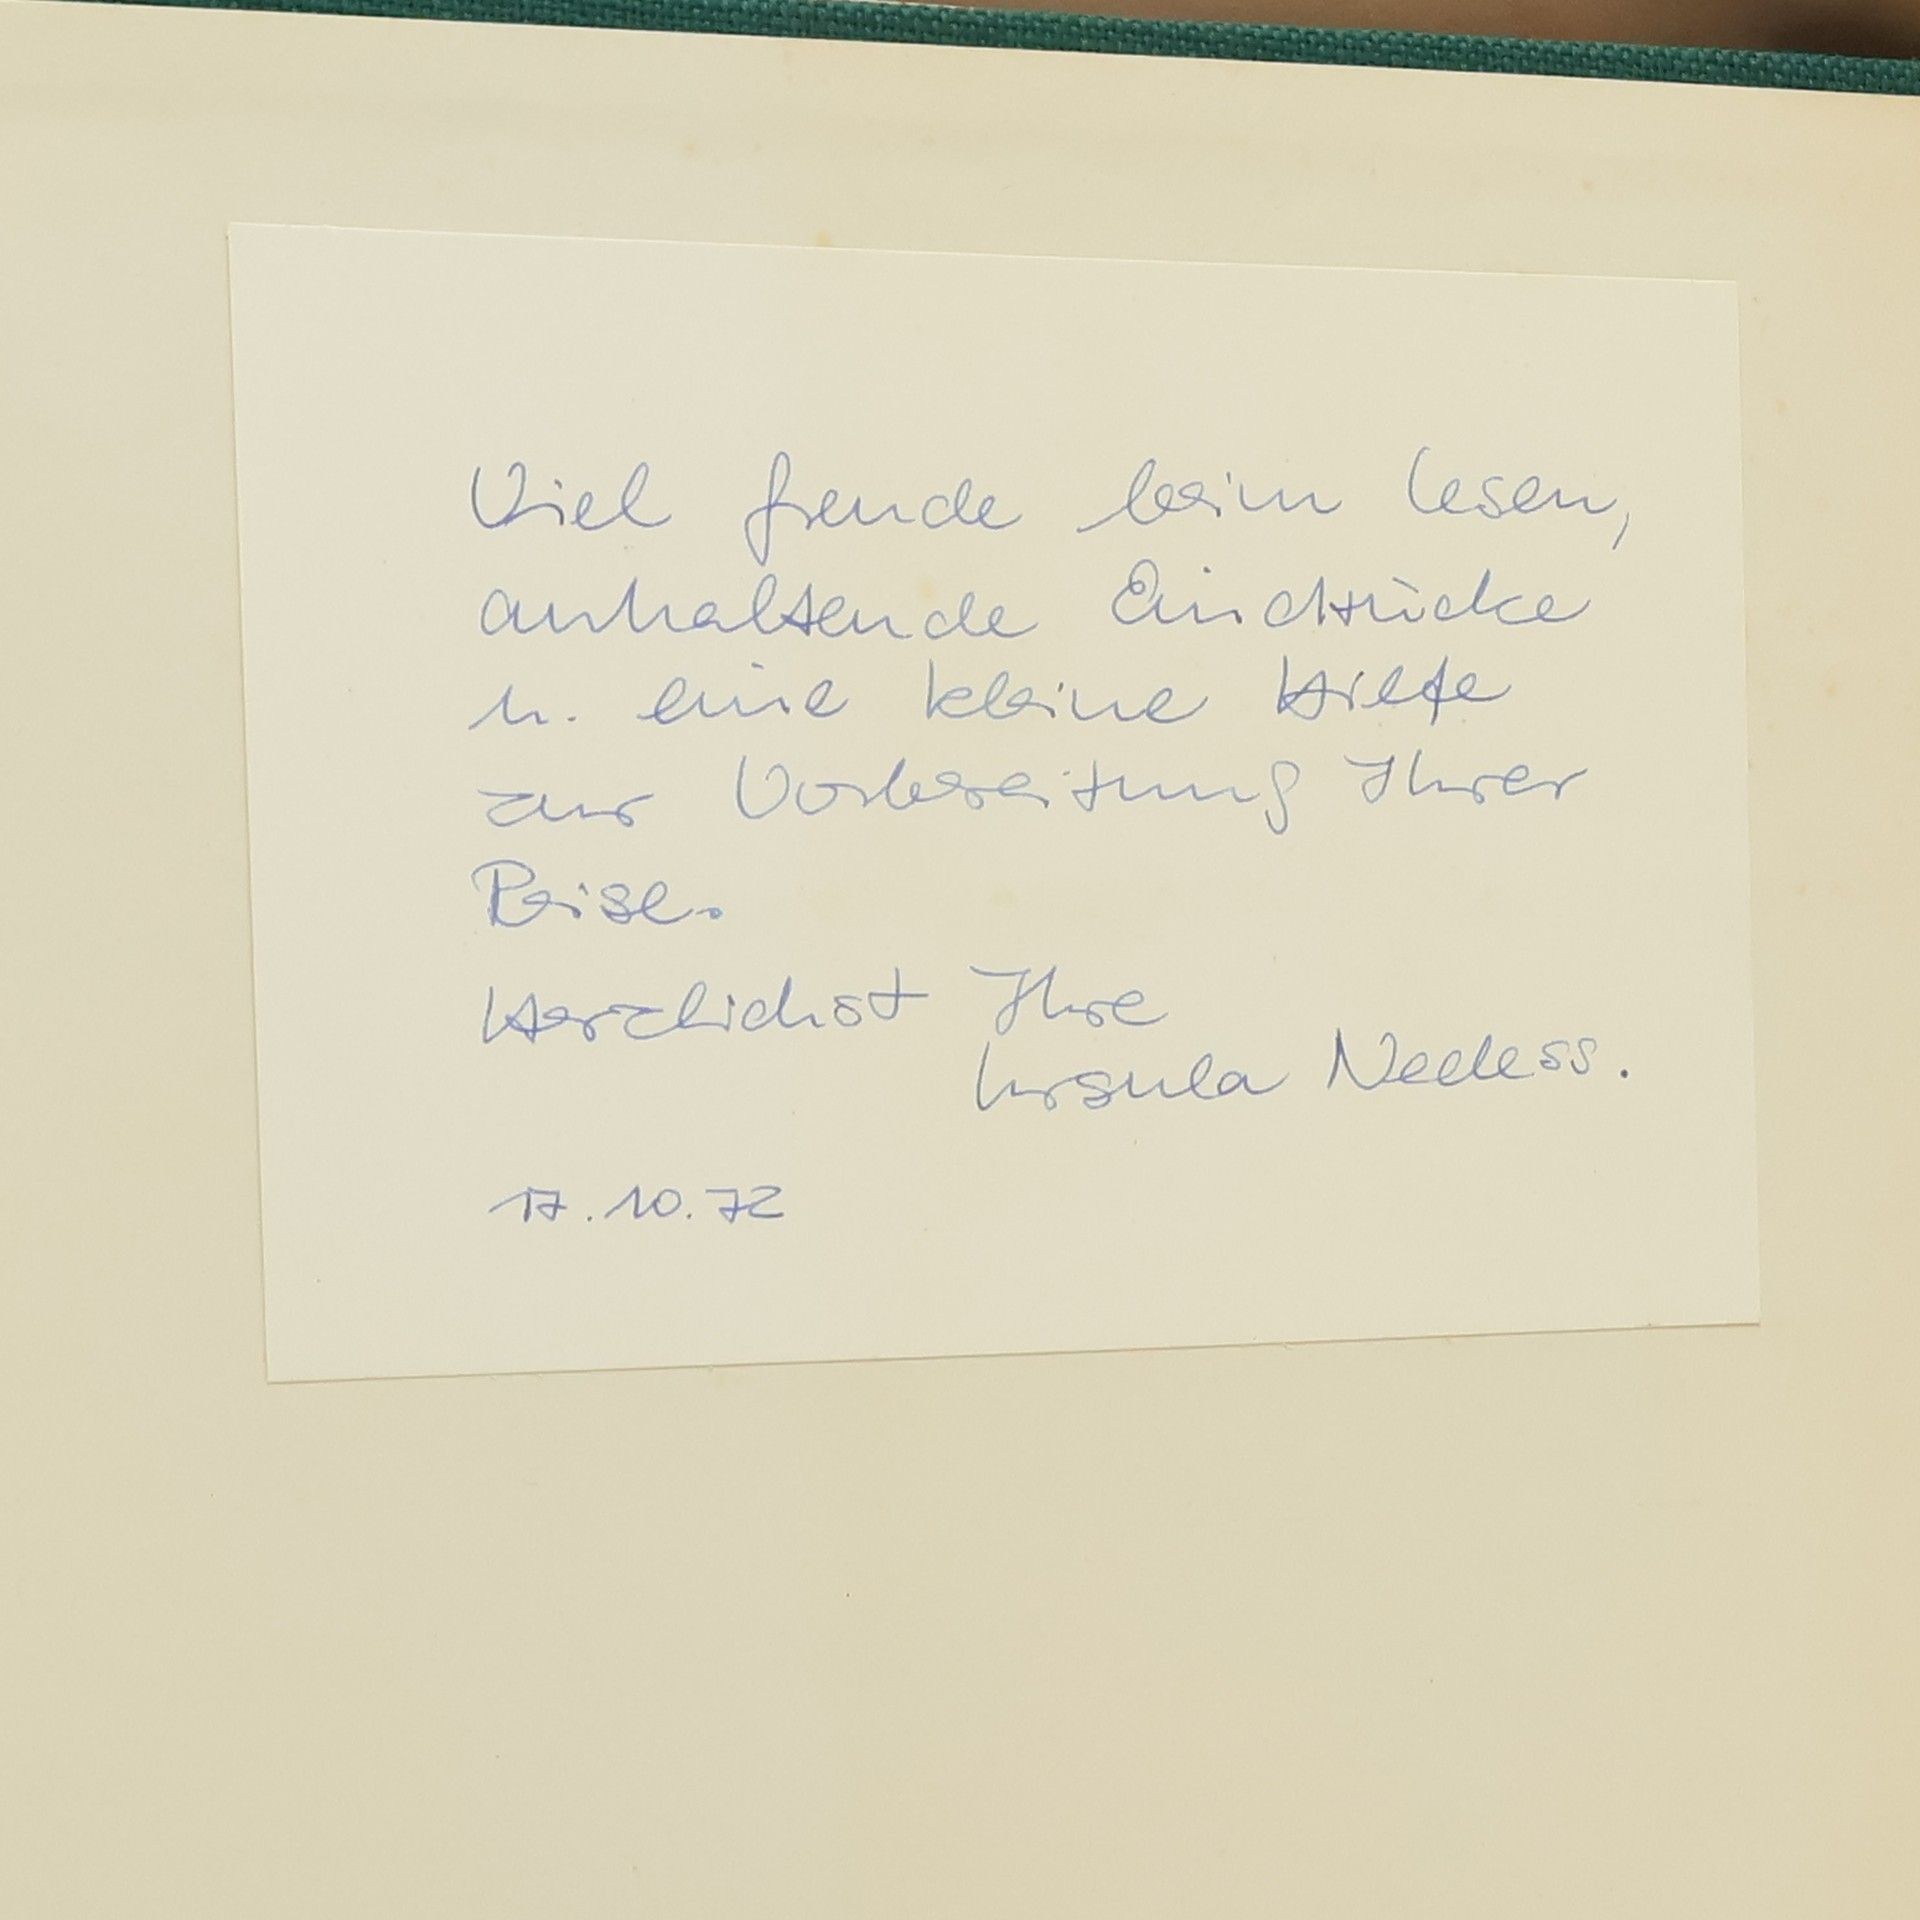 Viel Freude beim Lesen,
anhaltende Eindrücke
u. eine kleine Hilfe
zur Vorbereitung Ihrer
Reise.
Herzlichst Ihre
Ursula Nedess.
17.10.72